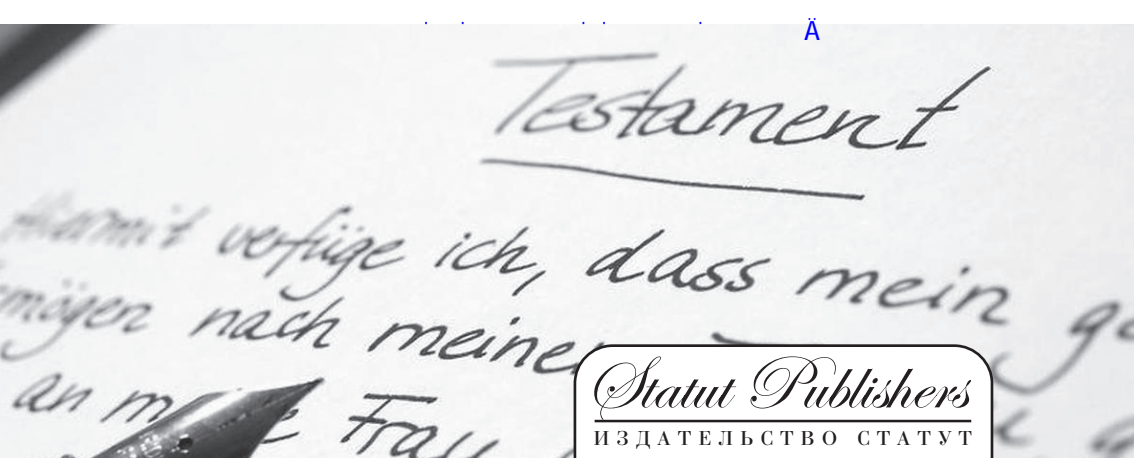 Ä
Testament
Hiermit verfüge ich, dass mein
mögen nach meine
an
Frau
Statut Publishers
ИЗДАТЕЛЬСТВО СТАТУТ